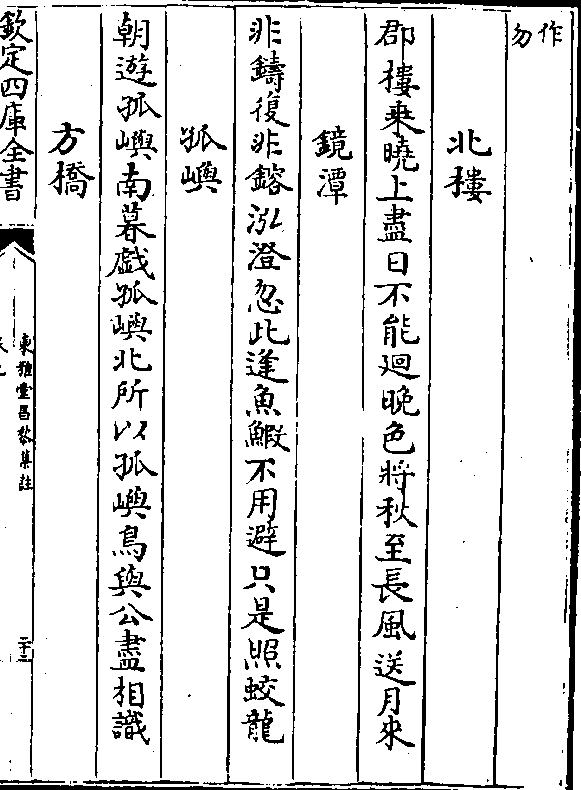 作
勿
北樓
郡樓乘曉上盡日不能廻晚色將秋至長風送月來
鏡潭
非鑄復非鎔泓澄忽此逢魚鰕不用避只是照蛟龍
孤嶼
朝遊孤嶼南暮戯孤嶼北所以孤嶼鳥與公盡相識
方橋
欽定四庫全書
東雅堂昌黎集註
二十二